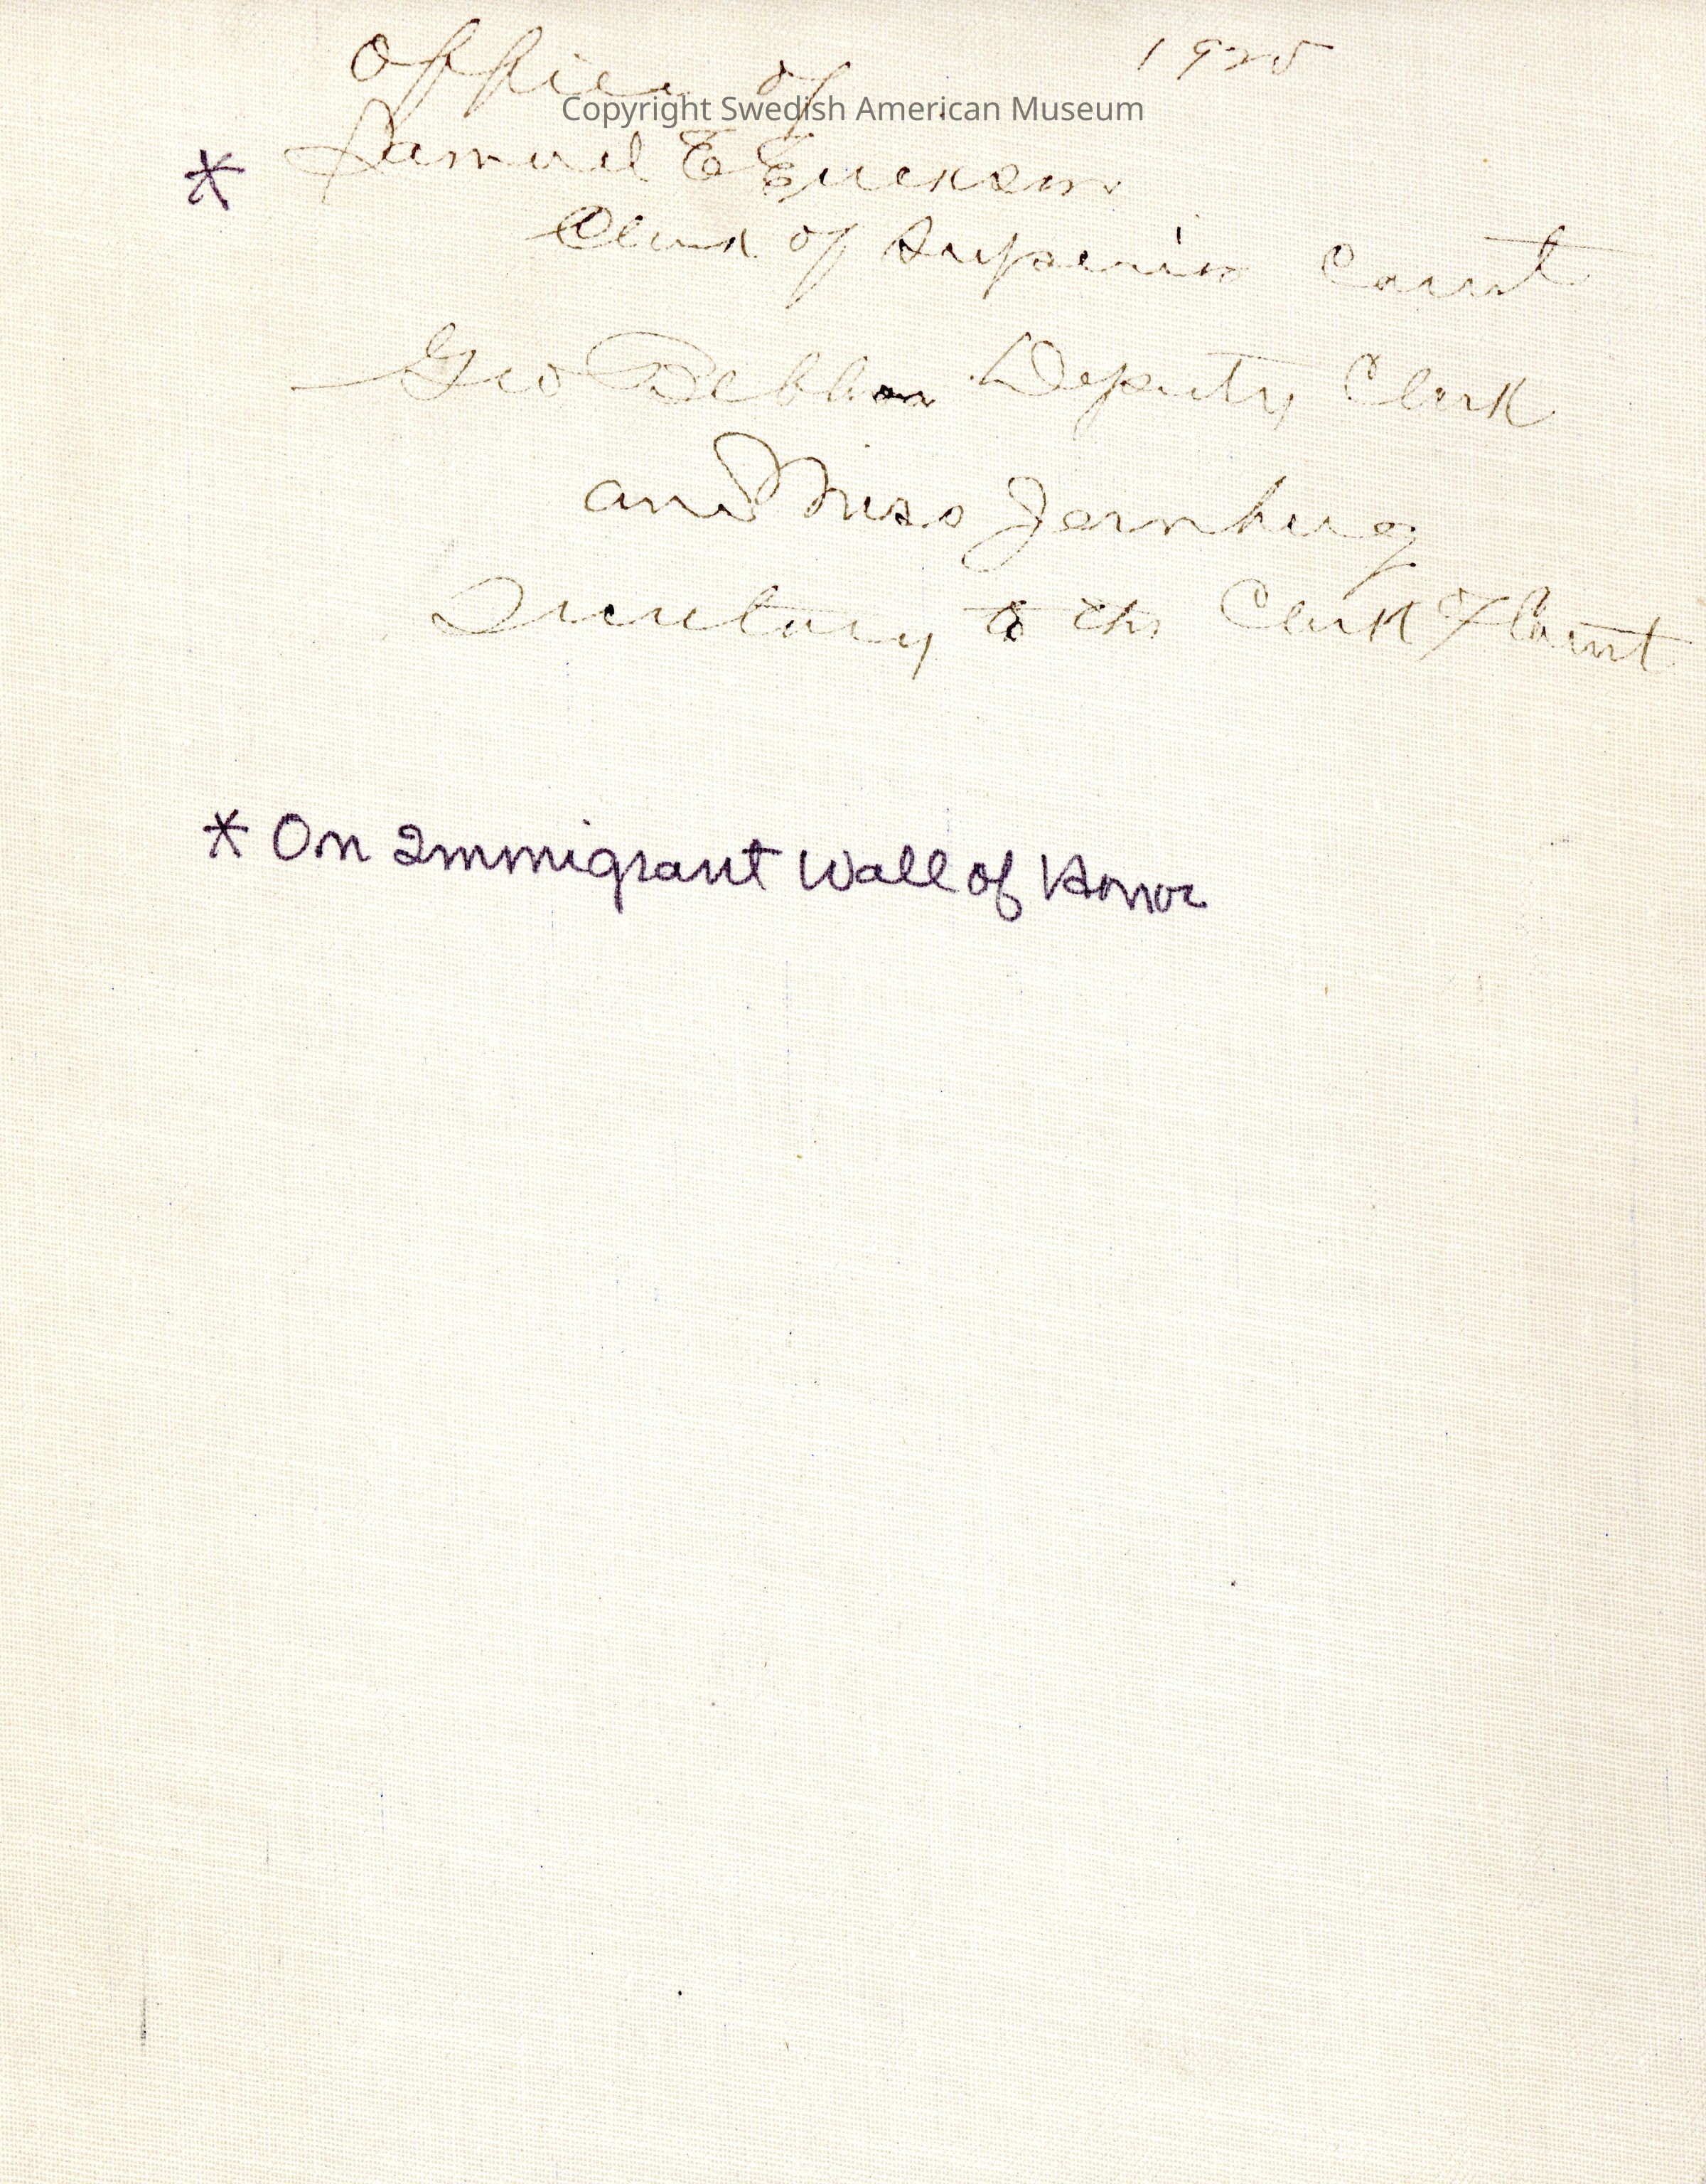 Office of 1925
Copyright Swedish American Museum
* Samuel E Erickson
Clerk of Superior Court
Geo Deputy Clerk
and Miss Jernberg
Secretary to the Clerk of Court
* On Immigrant Wall of Honor